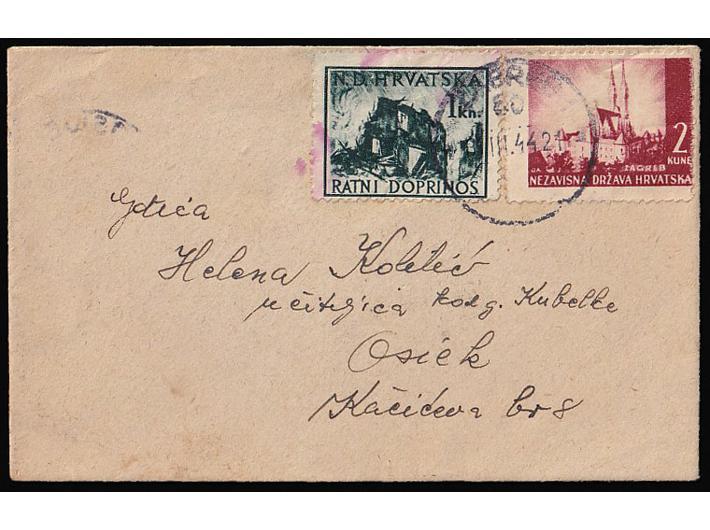 N.D.HRVATSKA
1 kn.
RATNI DOPRINOS
2
KUNE
ZAGREB
NEZAVISNA DRŽAVA HRVATSKA
III.44.21
Gdjica
Helena Koletić
učiteljica kod g. Kubelke
Osiek
Kačićeva br 8